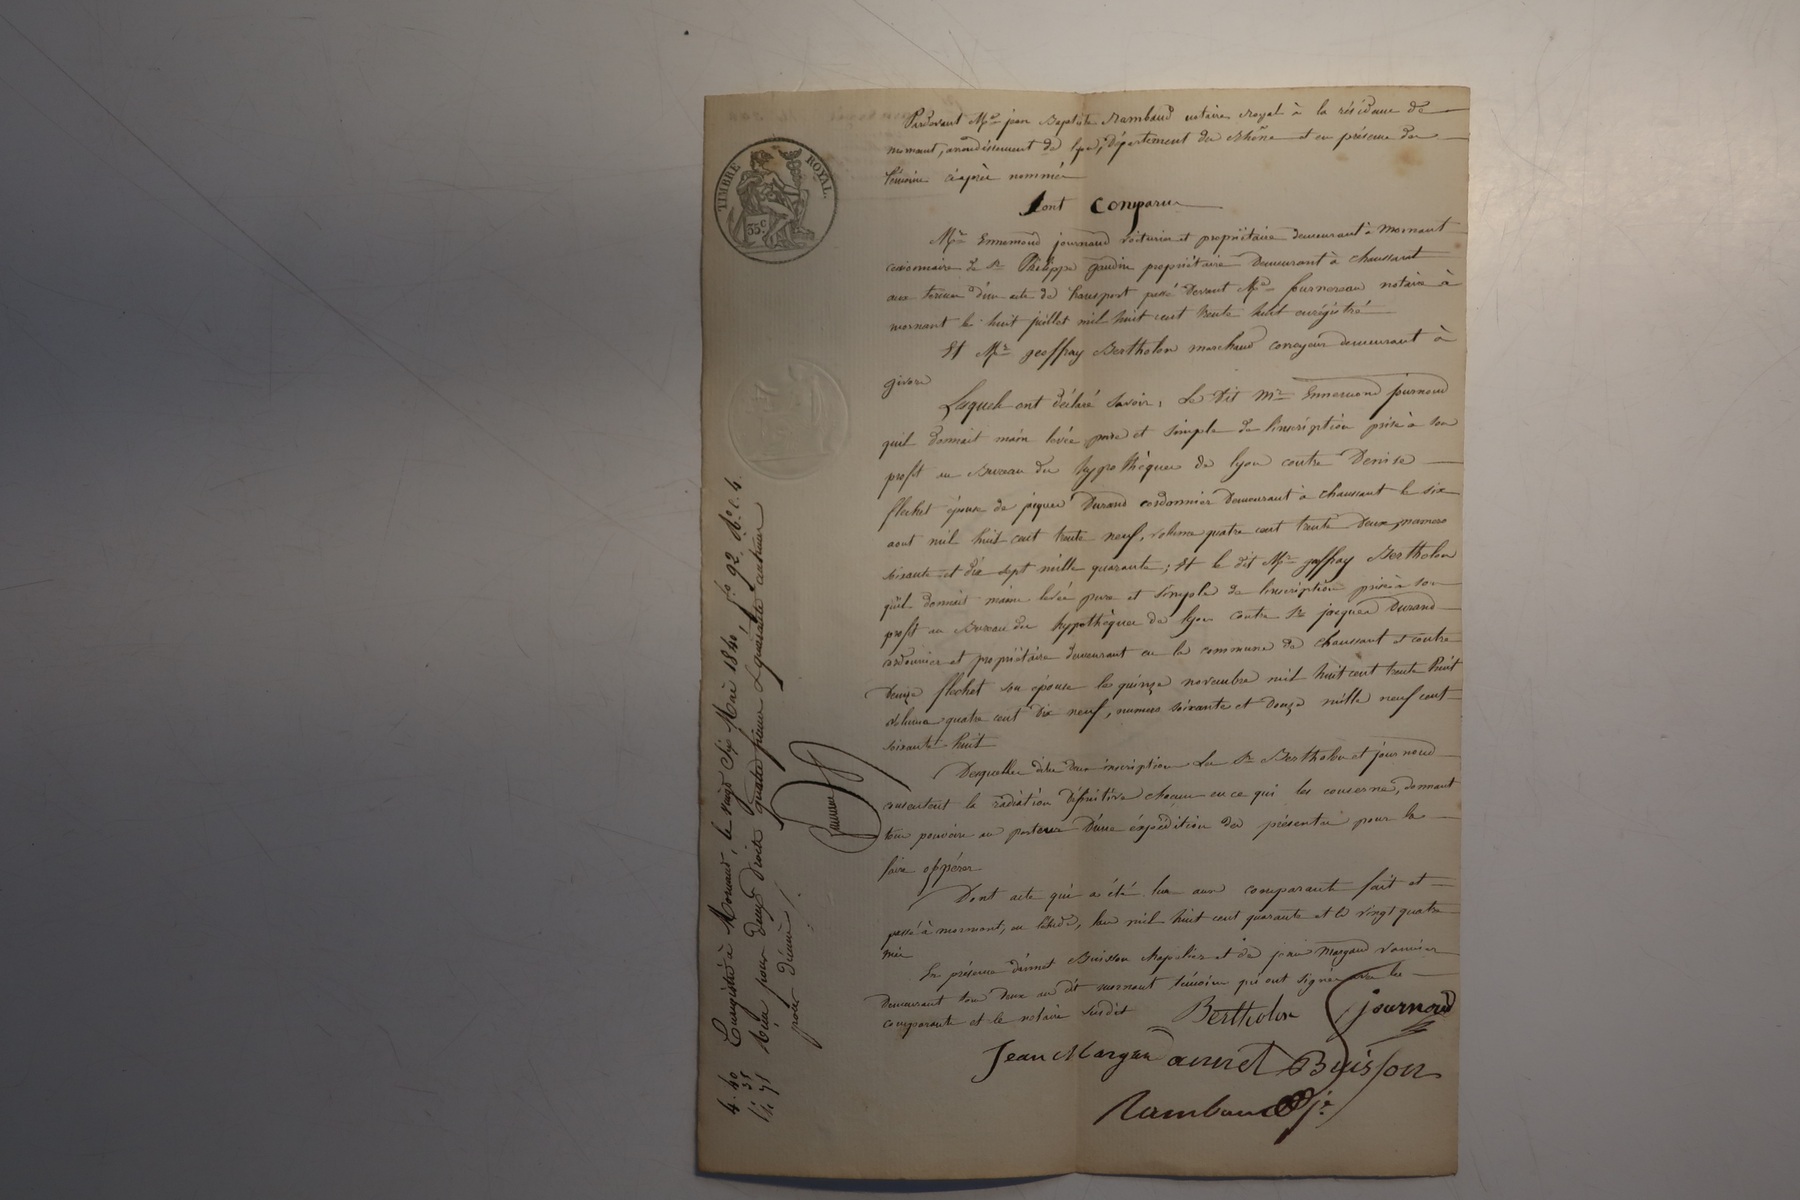 TIMBRE ROYAL
35 c
Pardevant Me jean Baptiste Rambaud notaire royal à la résidence de
mornant, arrondissement de lyon, département du Rhône et en présence des
témoins ciaprès nommés
Sont Comparus
Mr Ennemond journoud voiturier et propriétaire demeurant à Mornant
cessionnaire de Sr Philippe gaudin propriétaire demeurant à chaussant
aux termes d'un acte de transport passé devant Me fournereau notaire à
mornant le huit juillet mil huit cent trente huit enrégistré
Et Mr geoffray Bertholon marchand corroyeur demeurant à
givors
Lesquels ont déclaré savoir; Le Dit Mr Ennemond journoud
quil donnait main levée pure et simple de linscription prise à son
profit au Bureau des hypothèques de lyon contre Denise
flechet épouse de jacques Durand cordonnier demeurant à chaussant le six
aout mil huit cent trente neuf, volume quatre cent trente deux numero
soixante et dix sept mille quarante; Et le dit Mr joffray Bertholon
quil donnait maine levée pure et simple de linscription prise à son
profit au Bureau des hypothèques de lyon contre Sr jacques Durand
cordonnier et propriétaire demeurant en la commune de chaussant et contre
Denize flechet son épouse le quinze novembre mil huit cent trente huit
volume quatre cent dix neuf, numero soixante et douze mille neuf cent
soixante huit
Desquelles dites deux inscription Les Srs Bertholon et journoud
consentent la radiation définitive chacun en ce qui les conserne, donnant
tous pouvoirs au porteur d'une éxpédition des présentes pour la
faire oppérer
Dont acte qui a été lu aux comparants fait et
passé à mornant, en létude, lan mil huit cent quarante et le vingt quatre
mai
En présence dannet Buisson chapelier et de jean Margand vannier
demeurant tous deux au dit mornant témoins qui ont signés avec les
comparants et le notaire susdit
Bertholon journoud
Jean Margan annet Buisson
Rambaud
Enregistré à Mornant, le vingt six Mai 1840, fo 92 Ro c. 4.
Reçu pour deux droits quatre francs & quarante centimes
pour décime
4. 40
35